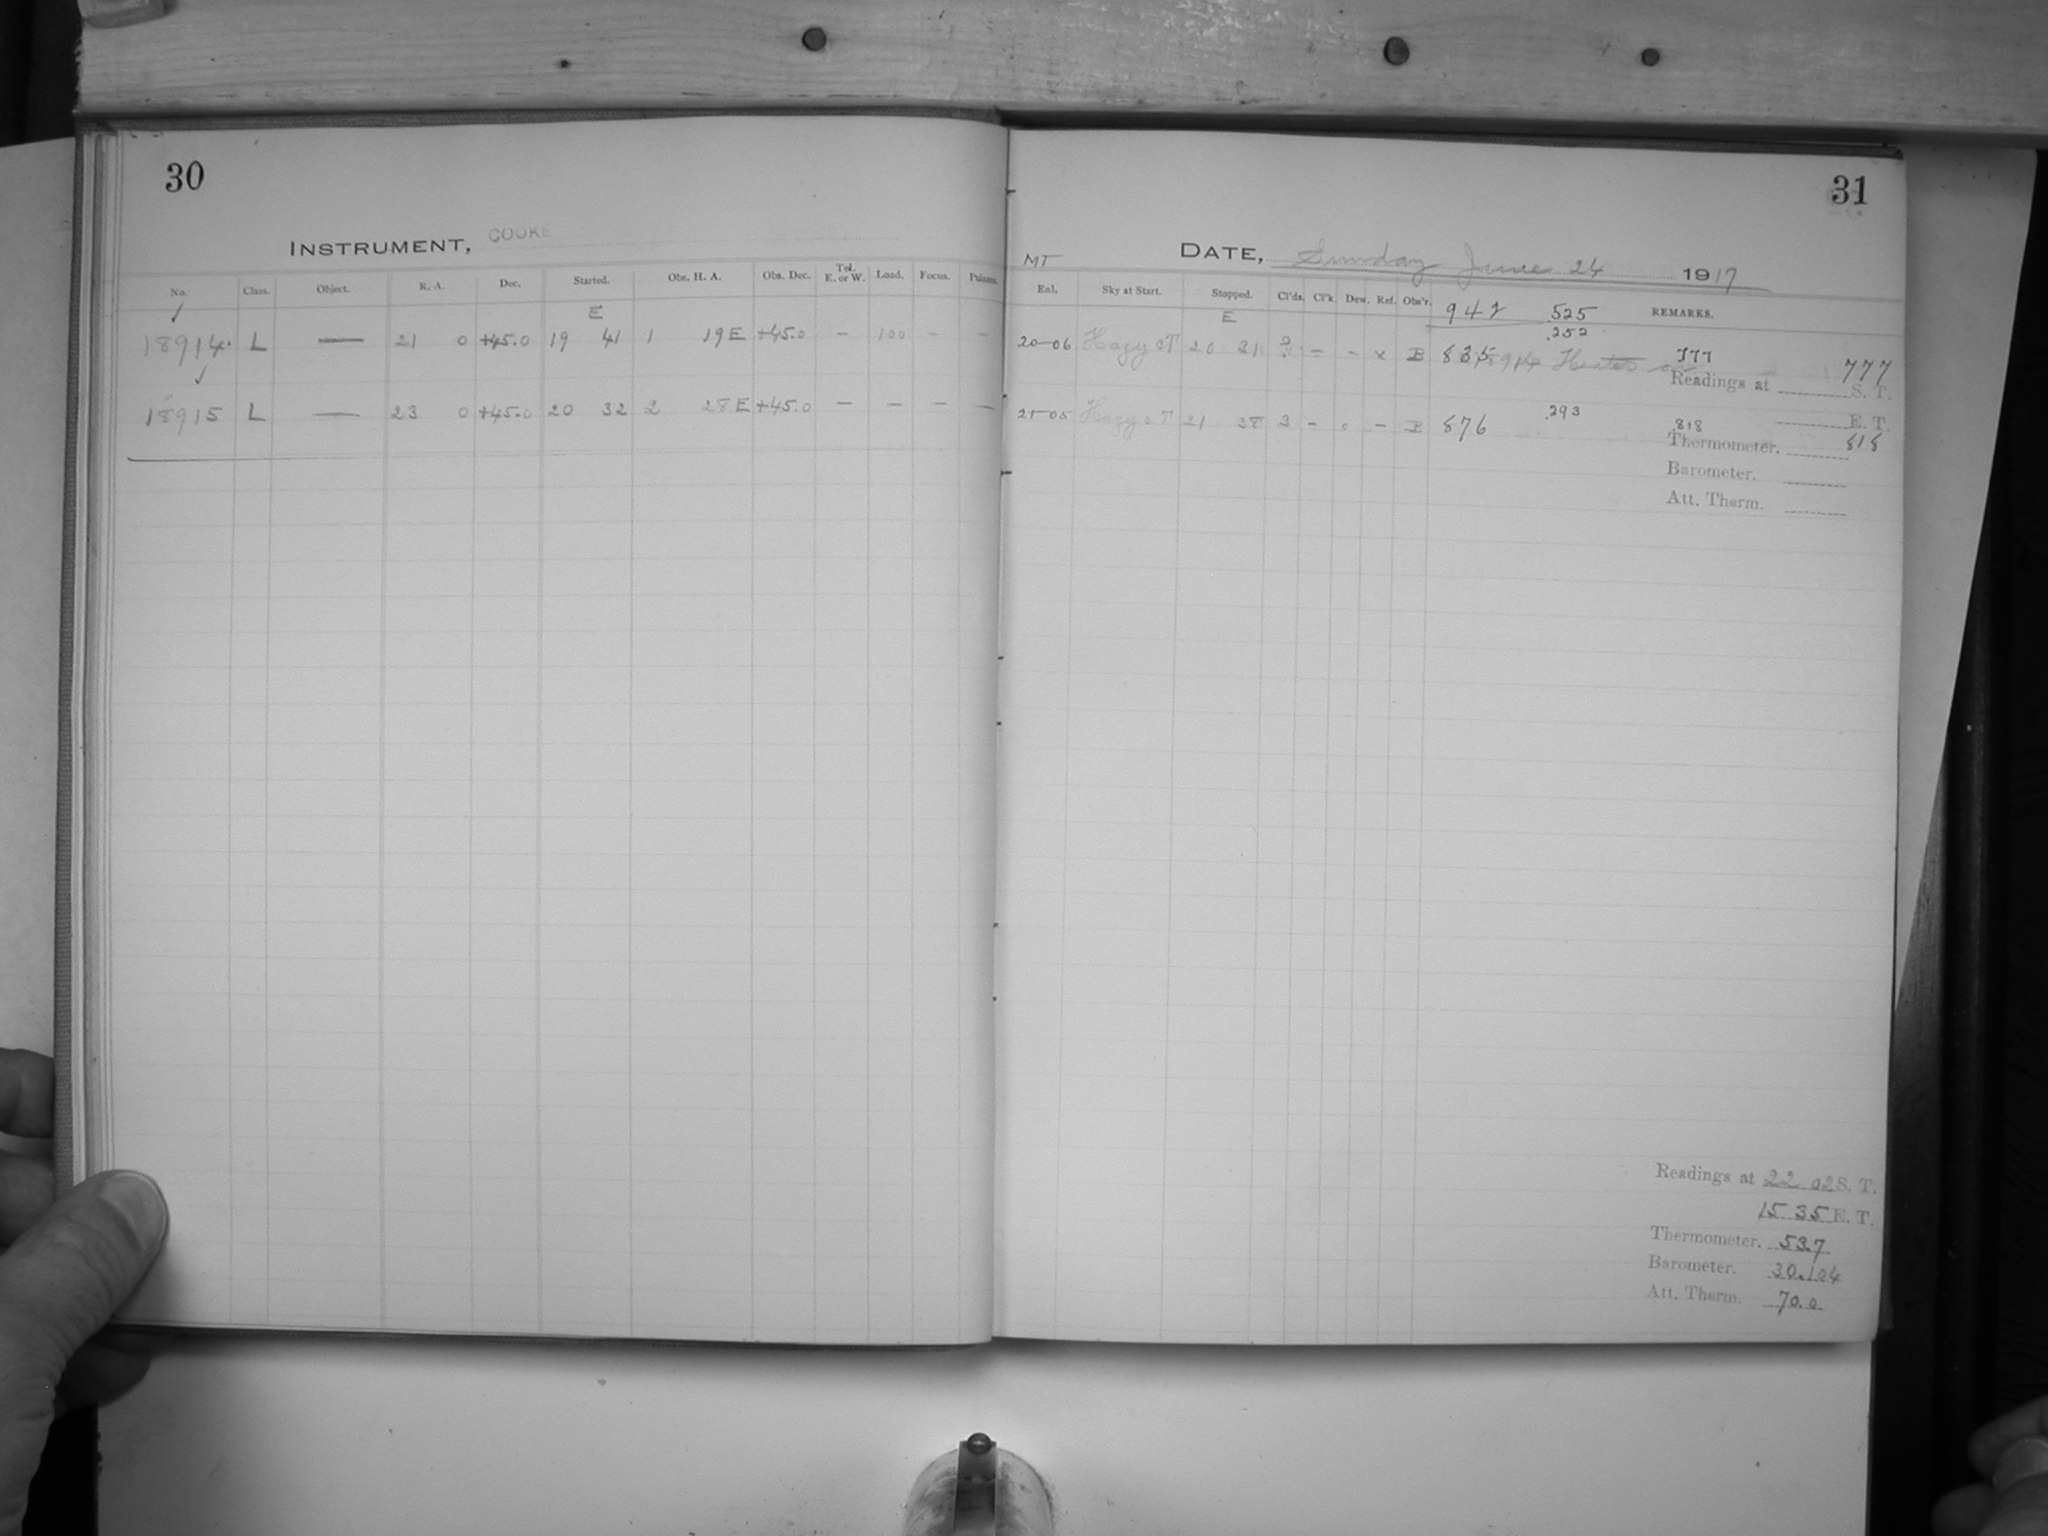 30
INSTRUMENT, COOKE
No. Class. Object. R. A. Dec. Started. Obs. H. A. Obs. Dec. Tel. E. or W. Load. Focus.
E
18914 L — 21 0 +45.0 19 41 1 19 E +45.0 – 100 – –
18915 L — 23 0 +45.0 20 32 2 28 E +45.0 – – – –
31
MT DATE, Sunday June 24 1917
Enl. Sky at Start. Stopped. Cl'ds. Cl'k. Dew. Ref. Obs'r. 942 525 REMARKS.
E .252
20-06 Hazy 20 31 – – x B 835 18914 777 777
Readings at S. T.
21-05 Hazy 21 38 3 – 0 – B 876 .293 .818 E. T.
Thermometer. 818
Barometer.
Att. Therm.
Readings at 22 02 S. T.
15 35 E. T.
Thermometer. 53.7
Barometer. 30.104
Att. Therm. 70.0